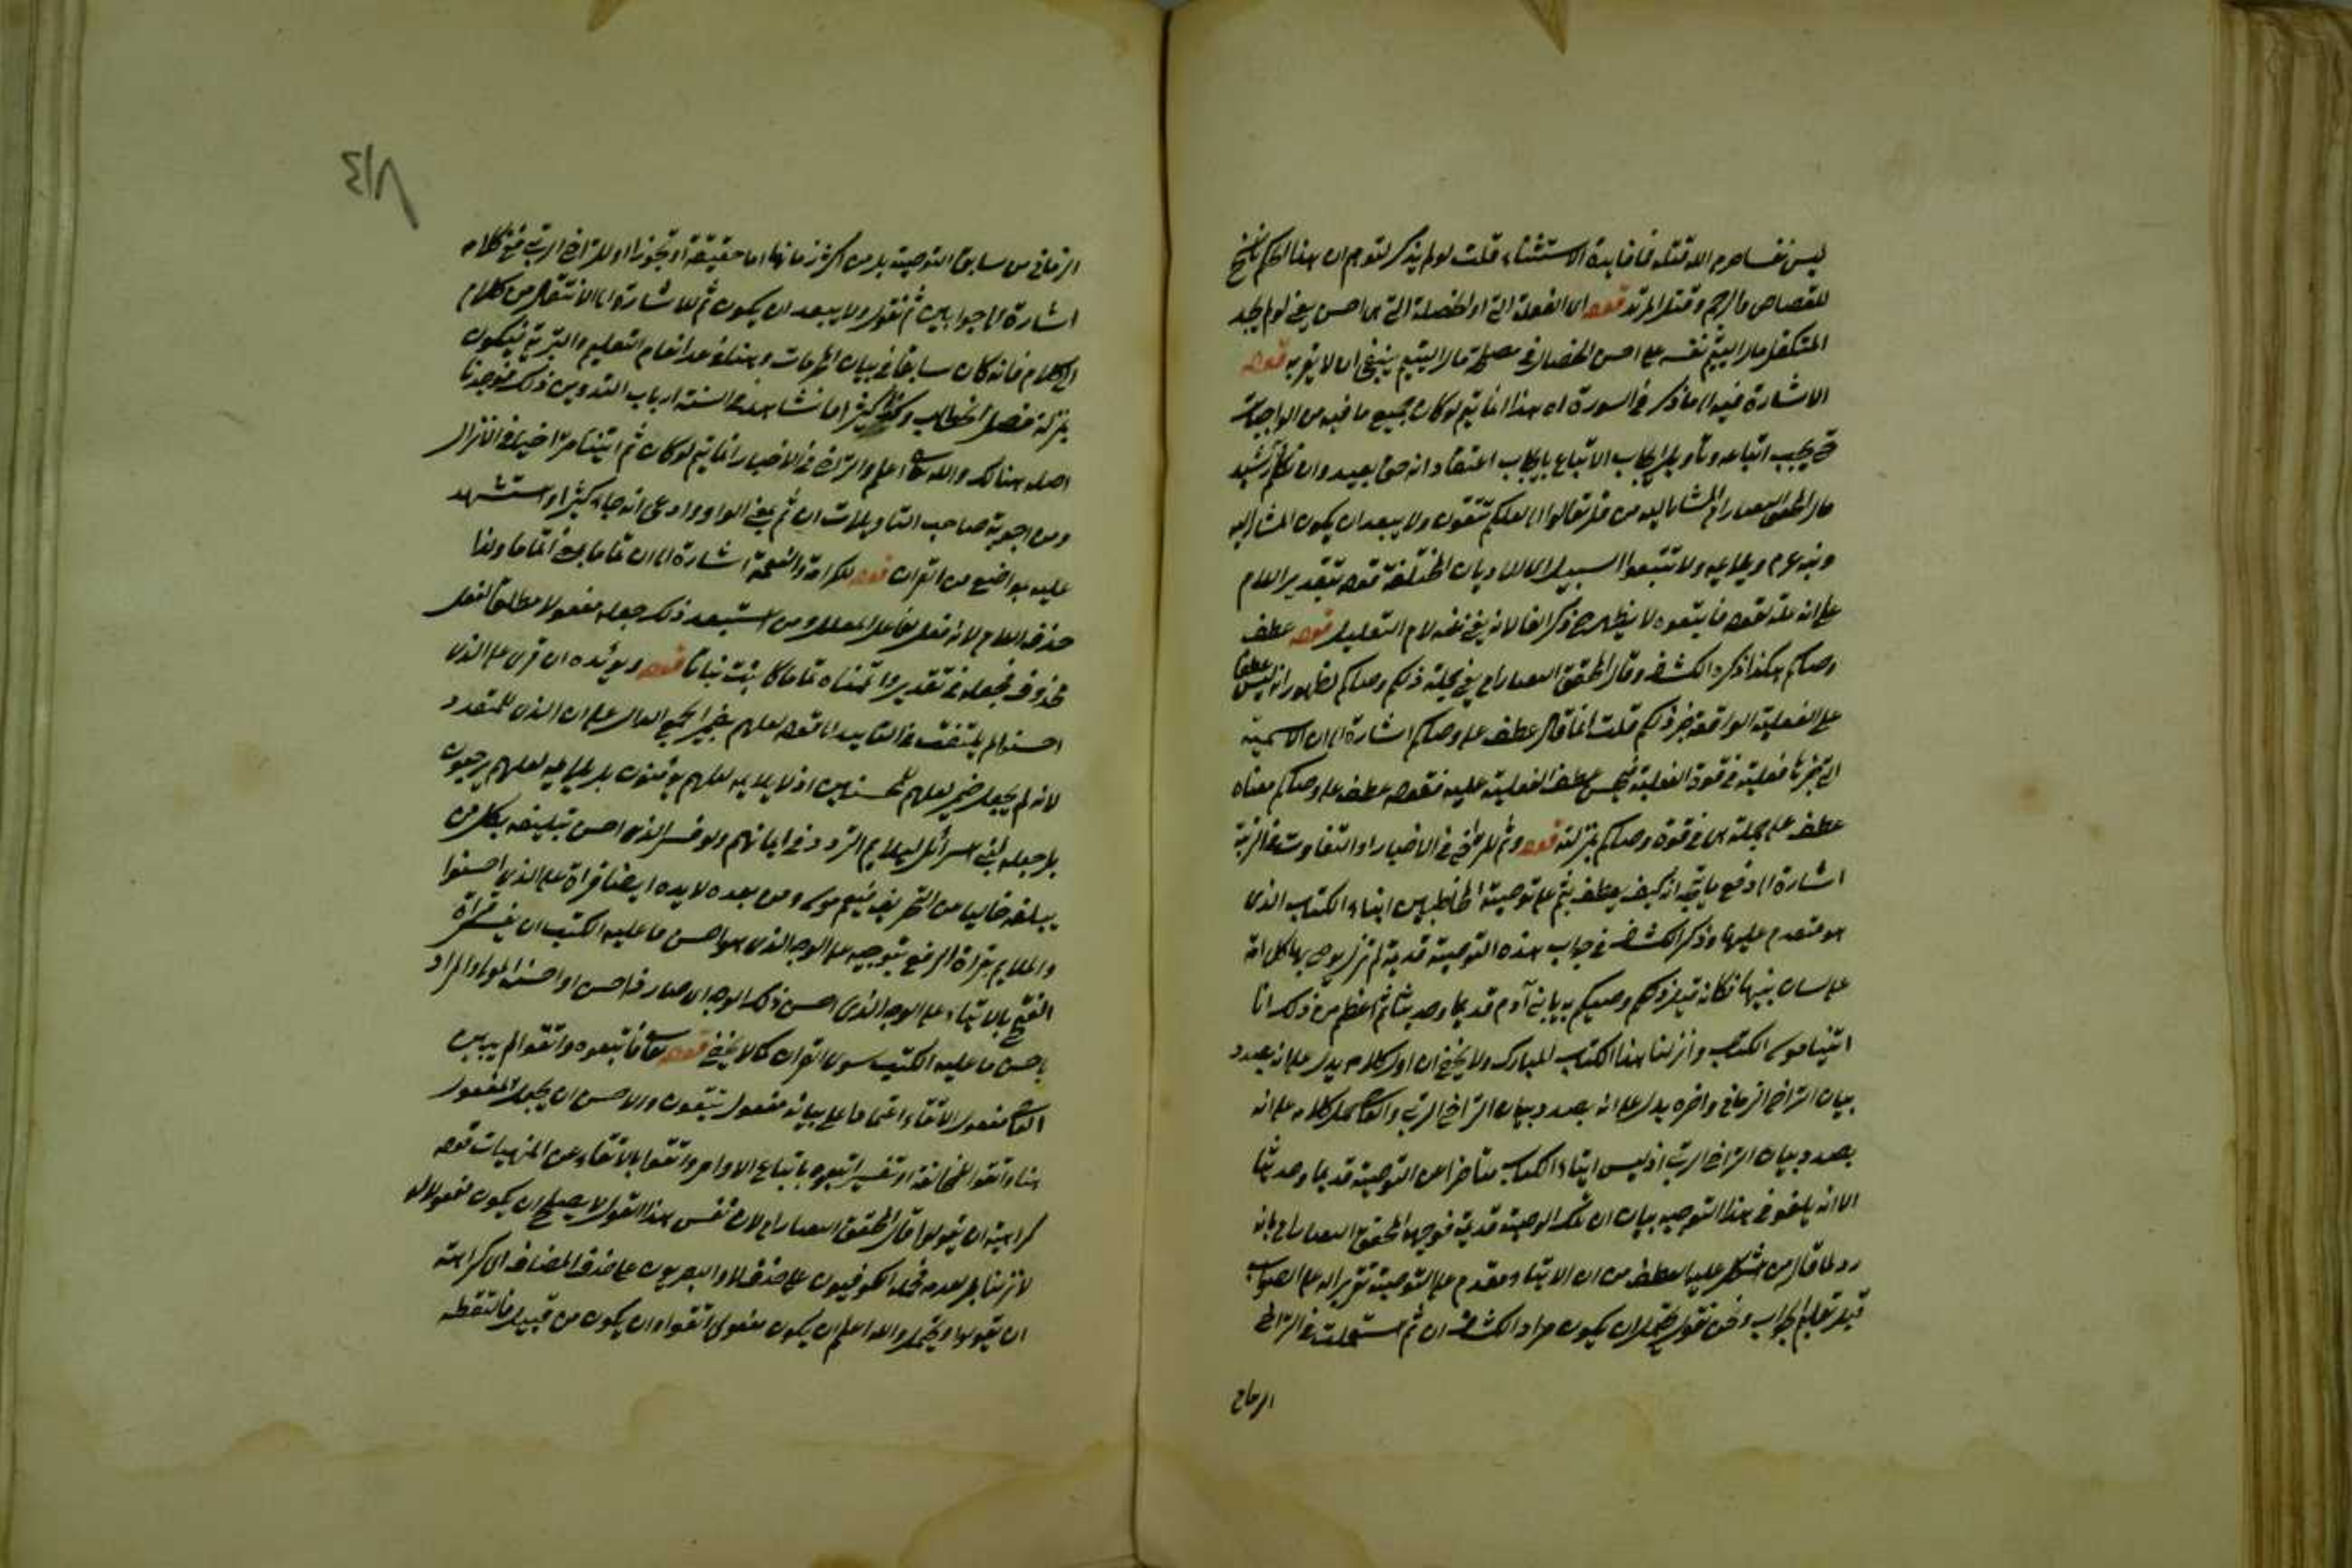 ليس نفسا حرم الله قتله فما فايدة الاستثناء قلت لو لم يذكر لتوهم ان هذا الحكم ناسخ
للقصاص والرجم وقتل المرتد قوله اى الفعلة التى او الخصلة التى هى احسن يعنى لو لم يجد
المتكفل مال اليتيم نفسه على احسن الخصال فى مصلحة مال اليتيم ينبغى ان لا يقربه قوله
الاشارة فيه الى ما ذكر فى السورة اه هذا انما يتم لو كان جميع ما فيه من الواجبات
حتى يجب اتباعه وتأويل ايجاب الاتباع بايجاب اعتقاد انه حق بعيد وان
قال المحقق العصام المشار اليه من قل تعالوا الى لعلكم تتقون ولا يبعد ان يكون المشار اليه
ويلايمه ولا تتبعوا السبيل اى الاديان المختلفة قوله بتقدير اللام
على انه علة لقوله فاتبعوه لا يظهر ذكر الفا لانه يغنى عنه لام التعليل قوله عطف
وصاكم هكذا ذكره الكشاف وقال المحقق العصام اى يعنى بجملة ذلكم وصاكم لظهور انه ليس عطفا
على الفعلية الواقعة خبر ذلكم قلت انما قال عطف على وصاكم اشارة الى ان الاسمية
التى خبرها فعلية فى قوة الفعلية فيحسن عطف الفعلية عليه فقوله عطف على وصاكم معناه
عطف على جملة هى فى قوة وصاكم بمنزلته قوله وثم للتراخى فى الاخبار او التفاوت فى الرتبة
اشارة الى دفع ما يتجه انه كيف يعطف بثم على توصية المخاطبين ايتاء الكتاب الذى
هو متقدم عليها وذكر الكشاف فى جواب هذه التوصية قديمة لم تزل يوصى بها كل امة
على لسان نبيها فكانه قيل ذلكم وصيكم به يا بنى آدم قديما وحديثا ثم اعظم من ذلك انا
اتينا موسى الكتب وانزلنا هذا الكتب المبارك ولا يخفى ان اول كلامه يدل على انه بصدد
بيان التراخى الزمانى واخره يدل على انه بصدد بيان التراخى الرتبى والقاضى حمل كلامه على انه
بصدد بيان التراخى الرتبى اذ ليس ايتاء الكتاب متأخرا عن التوصية قديما وحديثا
الا انه يلغو فى هذا التوجيه بيان ان تلك الوصية قديمة فوجهه المحقق العصام بانه
رد لما قال من استشكل عليه العطف من ان الايتاء مقدم على التوصية تقريرا له على الصواب
قبل تعليم الجواب ونحن نقول يحتمل ان يكون مراد الكشاف ان ثم استعملت فى التراخى
الزمانى
٤١٨
الزمانى من سابق التوصية بل من اكثر زمانها اما حقيقة او تجوزا او للتراخى الرتبى ففى كلامه
اشارة الى جوابين ثم نقول ولا يبعد ان يكون ثم للاشارة الى الانتقال من كلام
الى كلام فانه كان سابقا فى بيان المحرمات وهنا فى عد انعام التعليم والتربية فيكون
بمنزلة فصل الخطاب وكثيرا ما نشاهد على السنة ارباب التدوين ذلك فوجدنا
اصله هنالك والله تعالى اعلم والتراخى فى الاخبار انما يتم لو كان ثم اتينا متراخيا فى الانزال
ومن اجوبة صاحب التاويلات ان ثم بمعنى الواو وادعى انه جاء كثيرا واستشهد
عليه بمواضع من القران قوله للكرامة والنعمة اشارة الى ان تماما بمعنى اتماما ولذا
حذف اللام لانه فعل لفاعل المعلل ومن استبعد ذلك جعله مفعولا مطلقا لفعل
محذوف فجعله فى تقدير واتممناه تماما كانبت نباتا قوله ويؤيده ان قرى على الذى
احسنوا لم يلتفت فى التاييد الى قوله لعلهم بضمير الجمع الدال على ان الذى للمتعدد
لانه لم يجعل ضمير لعلهم للمحسنين اذ لا يلايمه لعلهم يوقنون بل يلايمه لعلهم يرحمون
بل جعله لبنى اسرائيل ليلايم التردد فى ايمانهم ولو فسر الذى احسن تبليغه بكل من
يبلغه خاليا عن التحريف فيعم موسى ومن بعده لايده ايضا قراة على الذى احسنوا
والملايم بقراة الرفع بتوجيه على الوجه الذى هو احسن ما عليه الكتب ان يفسر قراة
الفتح بالايتاء على الوجه الذى احسن ذلك الوجه اى صار ذا حسن او احسن المراد
باحسن ما عليه الكتب سوى القران كما لا يخفى قوله تعالى فاتبعوه واتقوا لم يبين
القاضى مفعول الاتقاء اعتمادا على بيانه مفعول تتقون والاحسن ان يجعل المفعول
هنا واتقوا المخالفة او تفسير اتبعوه باتباع الاوامر واتقوا بالاتقاء عن المنهيات قوله
كراهية ان تقولوا قال المحقق العصام اى لان نفس هذا القول لا يصلح ان يكون مفعولا له
لانزلنا بل عدمه فحمله الكوفيون على حذف لا والبصريون على حذف المضاف اى كراهة
ان تقولوا ويحتمل والله اعلم ان يكون مفعول اتقوا وان يكون من قبيل فالتقطه